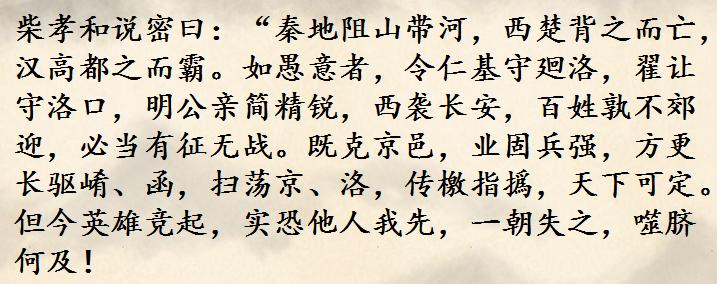 柴孝和说密曰：“秦地阻山带河，西楚背之而亡，
汉高都之而霸。如愚意者，令仁基守廻洛，翟让
守洛口，明公亲简精锐，西袭长安，百姓孰不郊
迎，必当有征无战。既克京邑，业固兵强，方更
长驱崤、函，扫荡京、洛，传檄指㧑，天下可定。
但今英雄竞起，实恐他人我先，一朝失之，噬脐
何及！